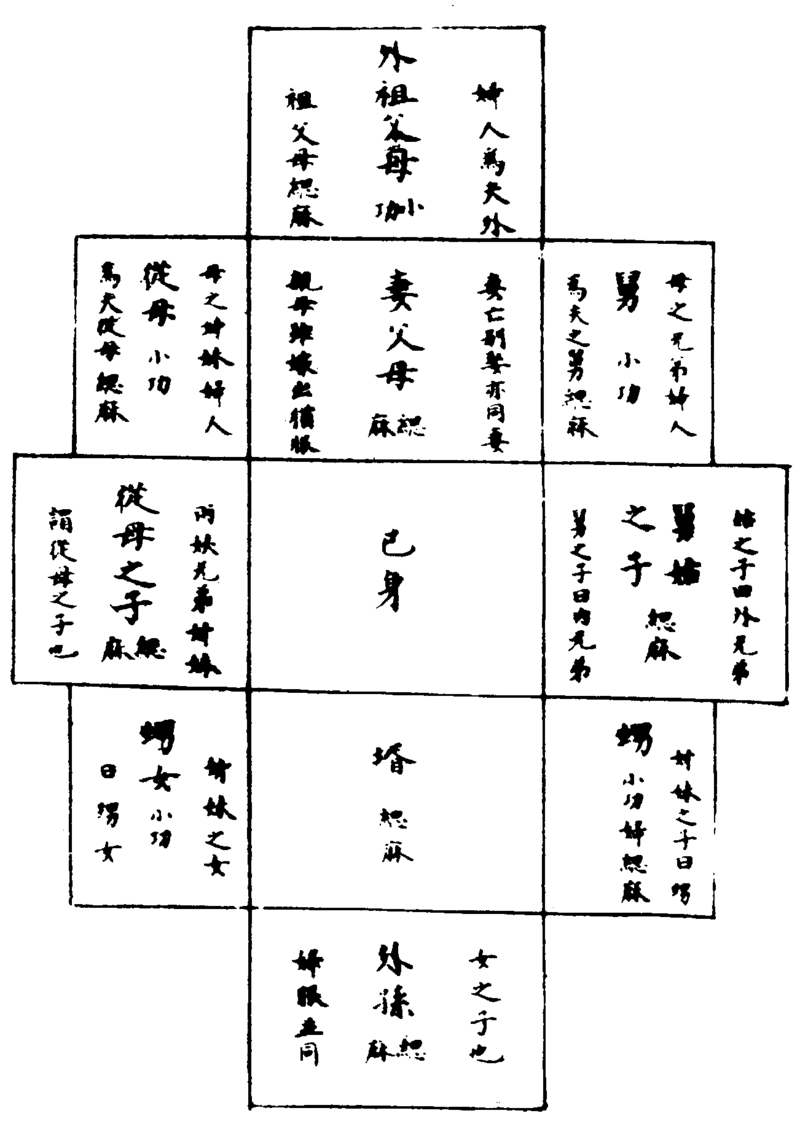 婦人為夫外
外祖父母 小功
祖父母緦麻
母之兄弟婦人
舅 小功
為夫之舅緦麻
妻亡別娶亦同妻
妻父母 緦麻
親母雖嫁出猶服
母之姊妹婦人
從母 小功
為夫從母緦麻
姑之子曰外兄弟
舅姑
之子 緦麻
舅之子曰內兄弟
己身
兩姨兄弟姊妹
從母之子 緦麻
謂從母之子也
姊妹之子曰甥
甥 小功婦緦麻
壻 緦麻
姊妹之女
甥女 小功
曰甥女
女之子也
外孫 緦麻
婦服並同